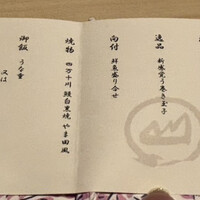 逸品
新蓮党う巻き玉子
向付
鮮魚盛り合せ
焼物
四万十川 鰻白黒焼 やま田風
御飯
うな重
又は